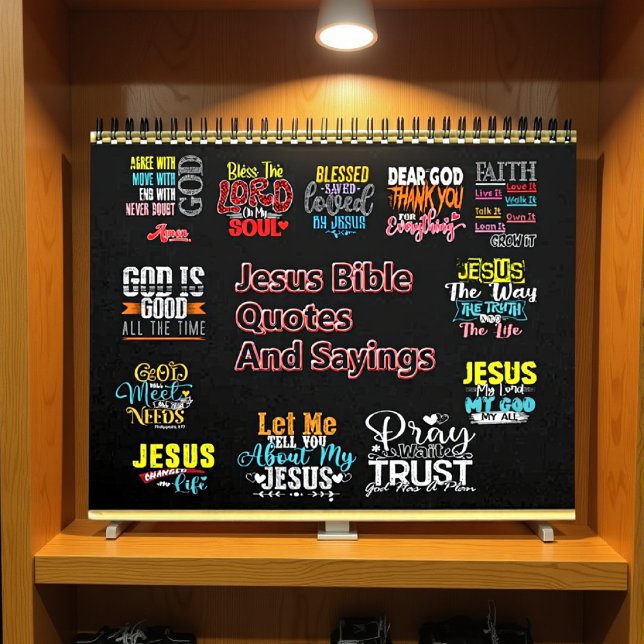 AGREE WITH
MOVE WITH
END WITH
NEVER DOUBT
GOD
Amen
Bless The
LORD
Oh My
SOUL
BLESSED
SAVED
loved
BY JESUS
DEAR GOD
THANK YOU
FOR
Everything
FAITH
Live It
Love It
Walk It
Talk It
Own It
Loan It
GROW IT
GOD IS
GOOD
ALL THE TIME
Jesus Bible
Quotes
And Sayings
JESUS
The Way
THE TRUTH
AND
The Life
GOD
Meet
NEEDS
JESUS
My Lord
MY GOD
MY ALL
JESUS
CHANGED
Life
Let Me
TELL YOU
About My
JESUS
Pray
Wait
TRUST
God Has A Plan